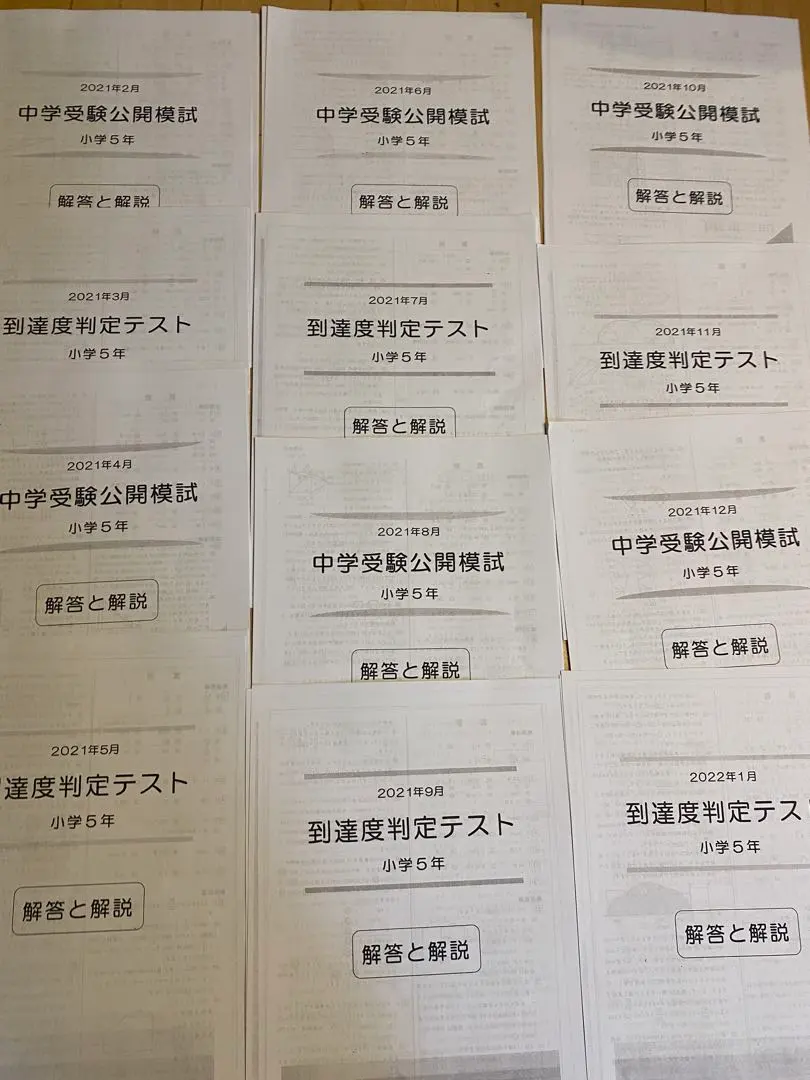 2021年2月
中学受験公開模試
小学5年
解答と解説
2021年3月
到達度判定テスト
小学5年
2021年4月
中学受験公開模試
小学5年
解答と解説
2021年5月
達度判定テスト
小学5年
解答と解説
2021年6月
中学受験公開模試
小学5年
解答と解説
2021年7月
到達度判定テスト
小学5年
解答と解説
2021年8月
中学受験公開模試
小学5年
解答と解説
2021年9月
到達度判定テスト
小学5年
解答と解説
2021年10月
中学受験公開模試
小学5年
解答と解説
2021年11月
到達度判定テスト
小学5年
2021年12月
中学受験公開模試
小学5年
解答と解説
2022年1月
到達度判定テス
小学5年
解答と解説